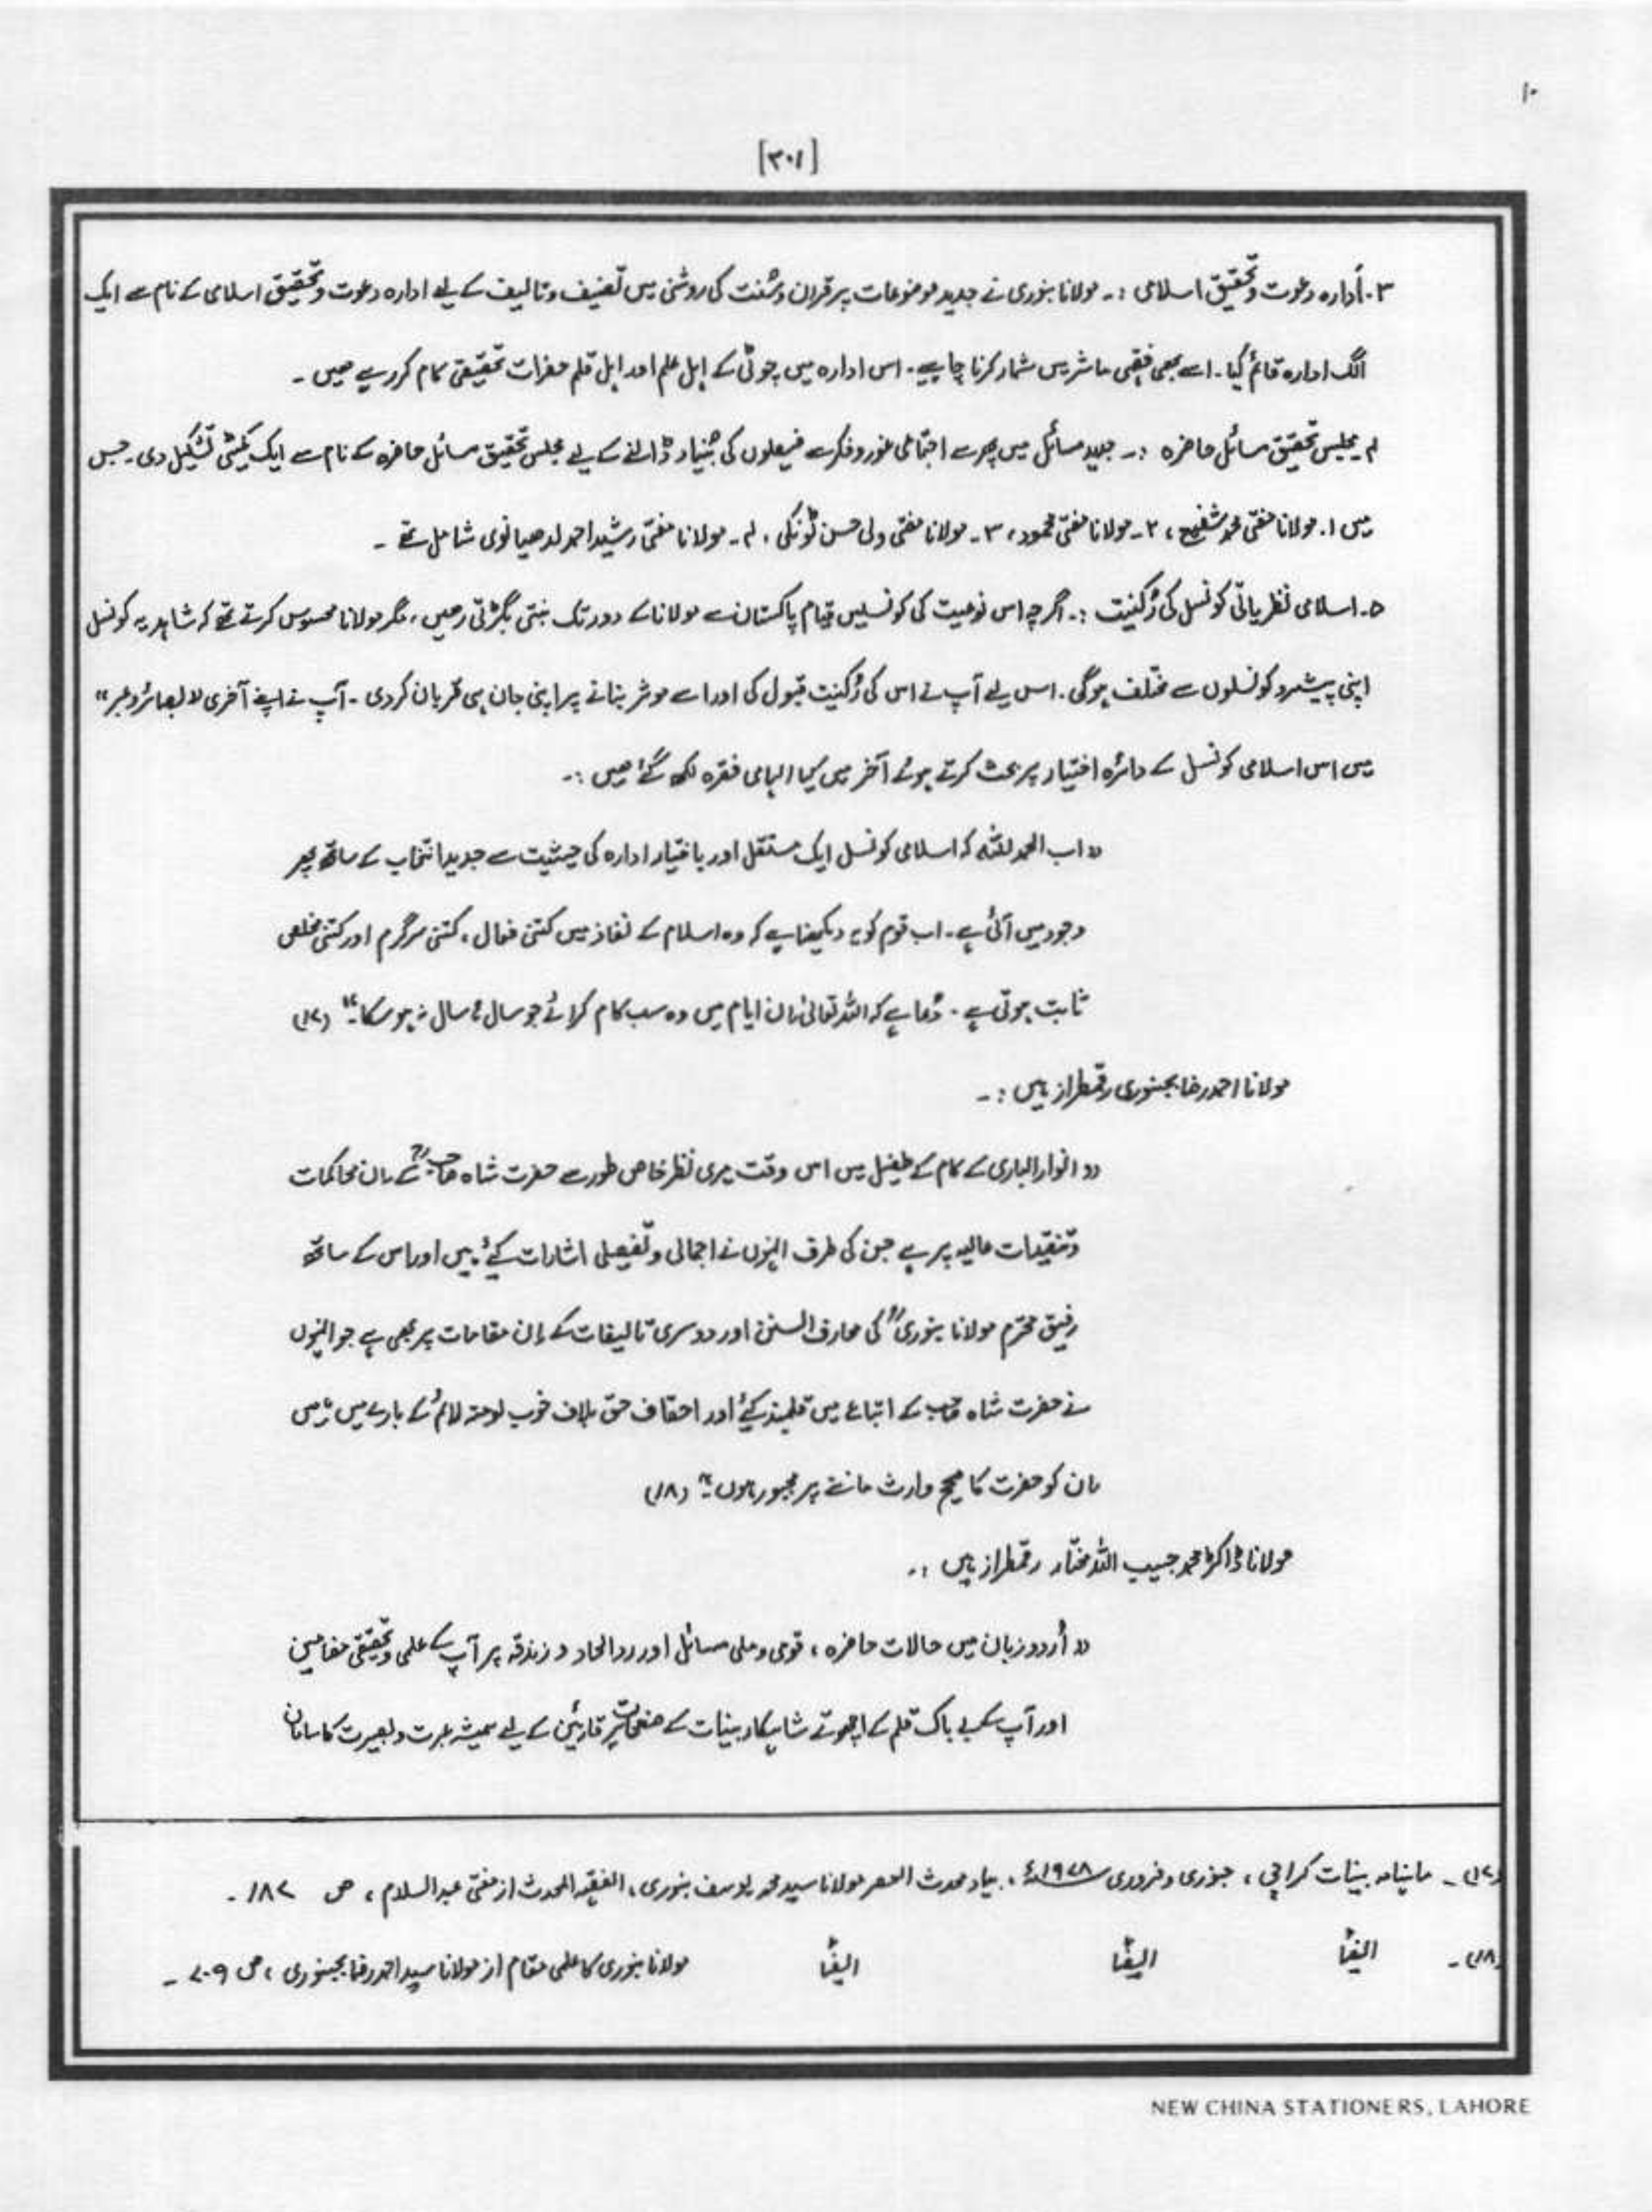 ۱۰
[۳۰۱]
۳۔ اداره دعوت و تحقیق اسلامی :۔ مولانا بنوری نے جدید موضوعات پر قرآن و سُنت کی روشنی میں تصنیف و تالیف کے لیے اداره دعوت و تحقیق اسلامی کے نام سے ایک
الگ اداره قائم کیا۔ اسے بھی فقہی مآثر میں شمار کرنا چاہیے۔ اس اداره میں چوٹی کے اہل علم اور اہل قلم حضرات تحقیقی کام کر رہے ھیں ۔
۴۔ مجلس تحقیق مسائل حاضره :۔ جدید مسائل میں پھر سے اجتماعی غور و فکر سے فیصلوں کی بُنیاد ڈالنے کے لیے مجلس تحقیق مسائل حاضره کے نام سے ایک کمیٹی تشکیل دی۔ جس
میں ۱۔ مولانا مفتی محمد شفیع ، ۲۔ مولانا مفتی محمود ، ۳۔ مولانا مفتی ولی حسن ٹونکی ، ۴۔ مولانا مفتی رشید احمد لدھیانوی شامل تھے ۔
۵۔ اسلامی نظریاتی کونسل کی رُکنیت :۔ اگرچہ اس نوعیت کی کونسلیں قیام پاکستان سے مولانا کے دور تک بنتی بگڑتی رھیں ، مگر مولانا محسوس کرتے تھے کہ شاید یہ کونسل
اپنی پیشرو کونسلوں سے مختلف ہوگی۔ اس لیے آپ نے اس کی رُکنیت قبول کی اور اسے موثر بنانے پر اپنی جان ہی قربان کردی ۔ آپ نے اپنے آخری "بصائر و عبر"
میں اس اسلامی کونسل کے دائره اختیار پر بحث کرتے ہوئے آخر میں کیا الہامی فقره لکھ گئے ھیں :۔
"اب الحمد للہ کہ اسلامی کونسل ایک مستقل اور با اختیار اداره کی حیثیت سے جدید انتخاب کے ساتھ پھر
وجود میں آئی ہے۔ اب قوم کو یہ دیکھنا ہے کہ وه اسلام کے نفاذ میں کتنی فعال ، کتنی سرگرم اور کتنی مخلص
ثابت ہوتی ہے ۔ دُعا ہے کہ اللہ تعالیٰ ان ایام میں وه سب کام کرائے جو سال ہا سال نہ ہو سکا۔" (۱۷)
مولانا احمد رضا بجنوری رقمطراز ہیں :۔
"انوار الباری کے کام کے طفیل میں اس وقت میری نظر خاص طور سے حضرت شاه صاحبؒ کے ان محاکمات
و تنقیدات عالیہ پر ہے جن کی طرف انہوں نے اجمالی و تفصیلی اشارات کیے ہیں اور اس کے ساتھ
رفیق محترم مولانا بنوریؒ کی معارف السنن اور دوسری تالیفات کے اِن مقامات پر بھی ہے جو انہوں
نے حضرت شاه صاحب کے اتباع میں قلمبند کیے اور احقاف حق بلاف خوب لومتہ لائم کے بارے میں
ان کو حضرت کا صحیح وارث ماننے پر مجبور ہوں۔" (۱۸)
مولانا ڈاکٹر محمد حبیب اللہ مختار رقمطراز ہیں :۔
"اُردو زبان میں حالات حاضره ، قومی و ملی مسائل اور رد الحاد و زندقہ پر آپ کے علمی و تحقیقی مضامین
اور آپ کے بے باک قلم کے اچھوتے شاہکار بینات کے صفحات پر قارئین کے لیے ہمیشہ عبرت و بصیرت کا سامان
(۱۷)۔ ماہنامہ بینات کراچی ، جنوری و فروری ۱۹۷۸ء ، بیاد محدث العصر مولانا سید محمد یوسف بنوری ، الفقیہ المحدث از مفتی عبد السلام ، ص ۱۸۷ ۔
(۱۸)۔ ایضًا ایضًا ایضًا مولانا بنوری کا علمی مقام از مولانا سید احمد رضا بجنوری ، ص ۷۰۹ ۔
NEW CHINA STATIONERS, LAHORE